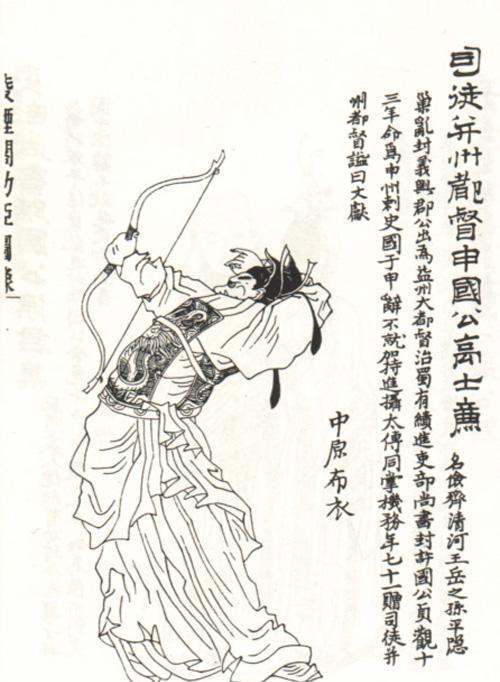 司徒并州都督申國公高士廉 名儉齊清河王岳之孫平隱
巢亂封義興郡公出為益州大都督治蜀有績進吏部尚書封許國公貞觀十
三年命為申州刺史國于申辭不就加特進攝太傅同掌機務年七十一贈司徒并
州都督諡曰文獻
中原布衣
凌煙閣功臣圖像